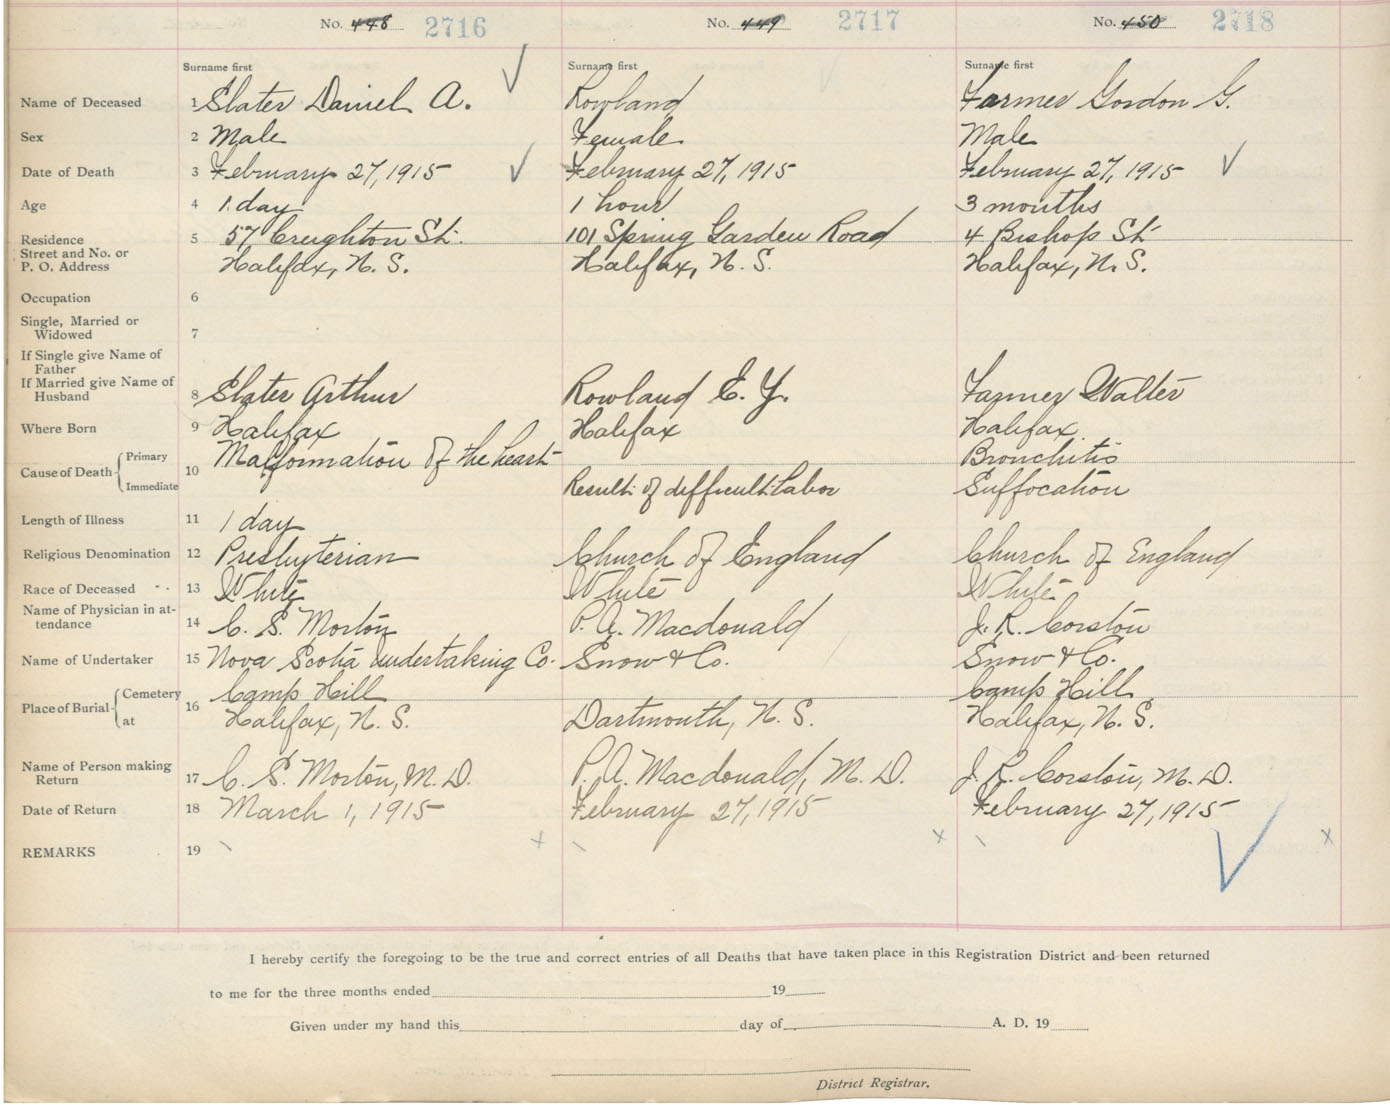 No. 448 2716 No. 449 2717 No. 450 2718
Surname first Surname first Surname first
Name of Deceased 1 Slater Daniel A. Rowland Farmer Gordon G.
Sex 2 Male Female Male
Date of Death 3 February 27, 1915 February 27, 1915 February 27, 1915
Age 4 1 day 1 hour 3 months
Residence 5 57 Creighton St. 101 Spring Garden Road 4 Bishop St
Street and No. or
P. O. Address Halifax, N. S. Halifax, N. S. Halifax, N. S.
Occupation 6
Single, Married or
Widowed 7
If Single give Name of
Father
If Married give Name of
Husband 8 Slater Arthur Rowland E. Y. Farmer Walter
Where Born 9 Halifax Halifax Halifax
Cause of Death Primary 10 Malformation of the heart Bronchitis
Immediate Result of difficult labor Suffocation
Length of Illness 11 1 day
Religious Denomination 12 Presbyterian Church of England Church of England
Race of Deceased 13 White White White
Name of Physician in at-
tendance 14 C. S. Morton P. A. Macdonald J. R. Corston
Name of Undertaker 15 Nova Scotia Undertaking Co. Snow & Co. Snow & Co.
Place of Burial Cemetery 16 Camp Hill Camp Hill
at Halifax, N. S. Dartmouth, N. S. Halifax, N. S.
Name of Person making
Return 17 C. S. Morton, M. D. P. A. Macdonald, M. D. J. R. Corston, M. D.
Date of Return 18 March 1, 1915 February 27, 1915 February 27, 1915
REMARKS 19
I hereby certify the foregoing to be the true and correct entries of all Deaths that have taken place in this Registration District and been returned
to me for the three months ended 19
Given under my hand this day of A. D. 19
District Registrar.